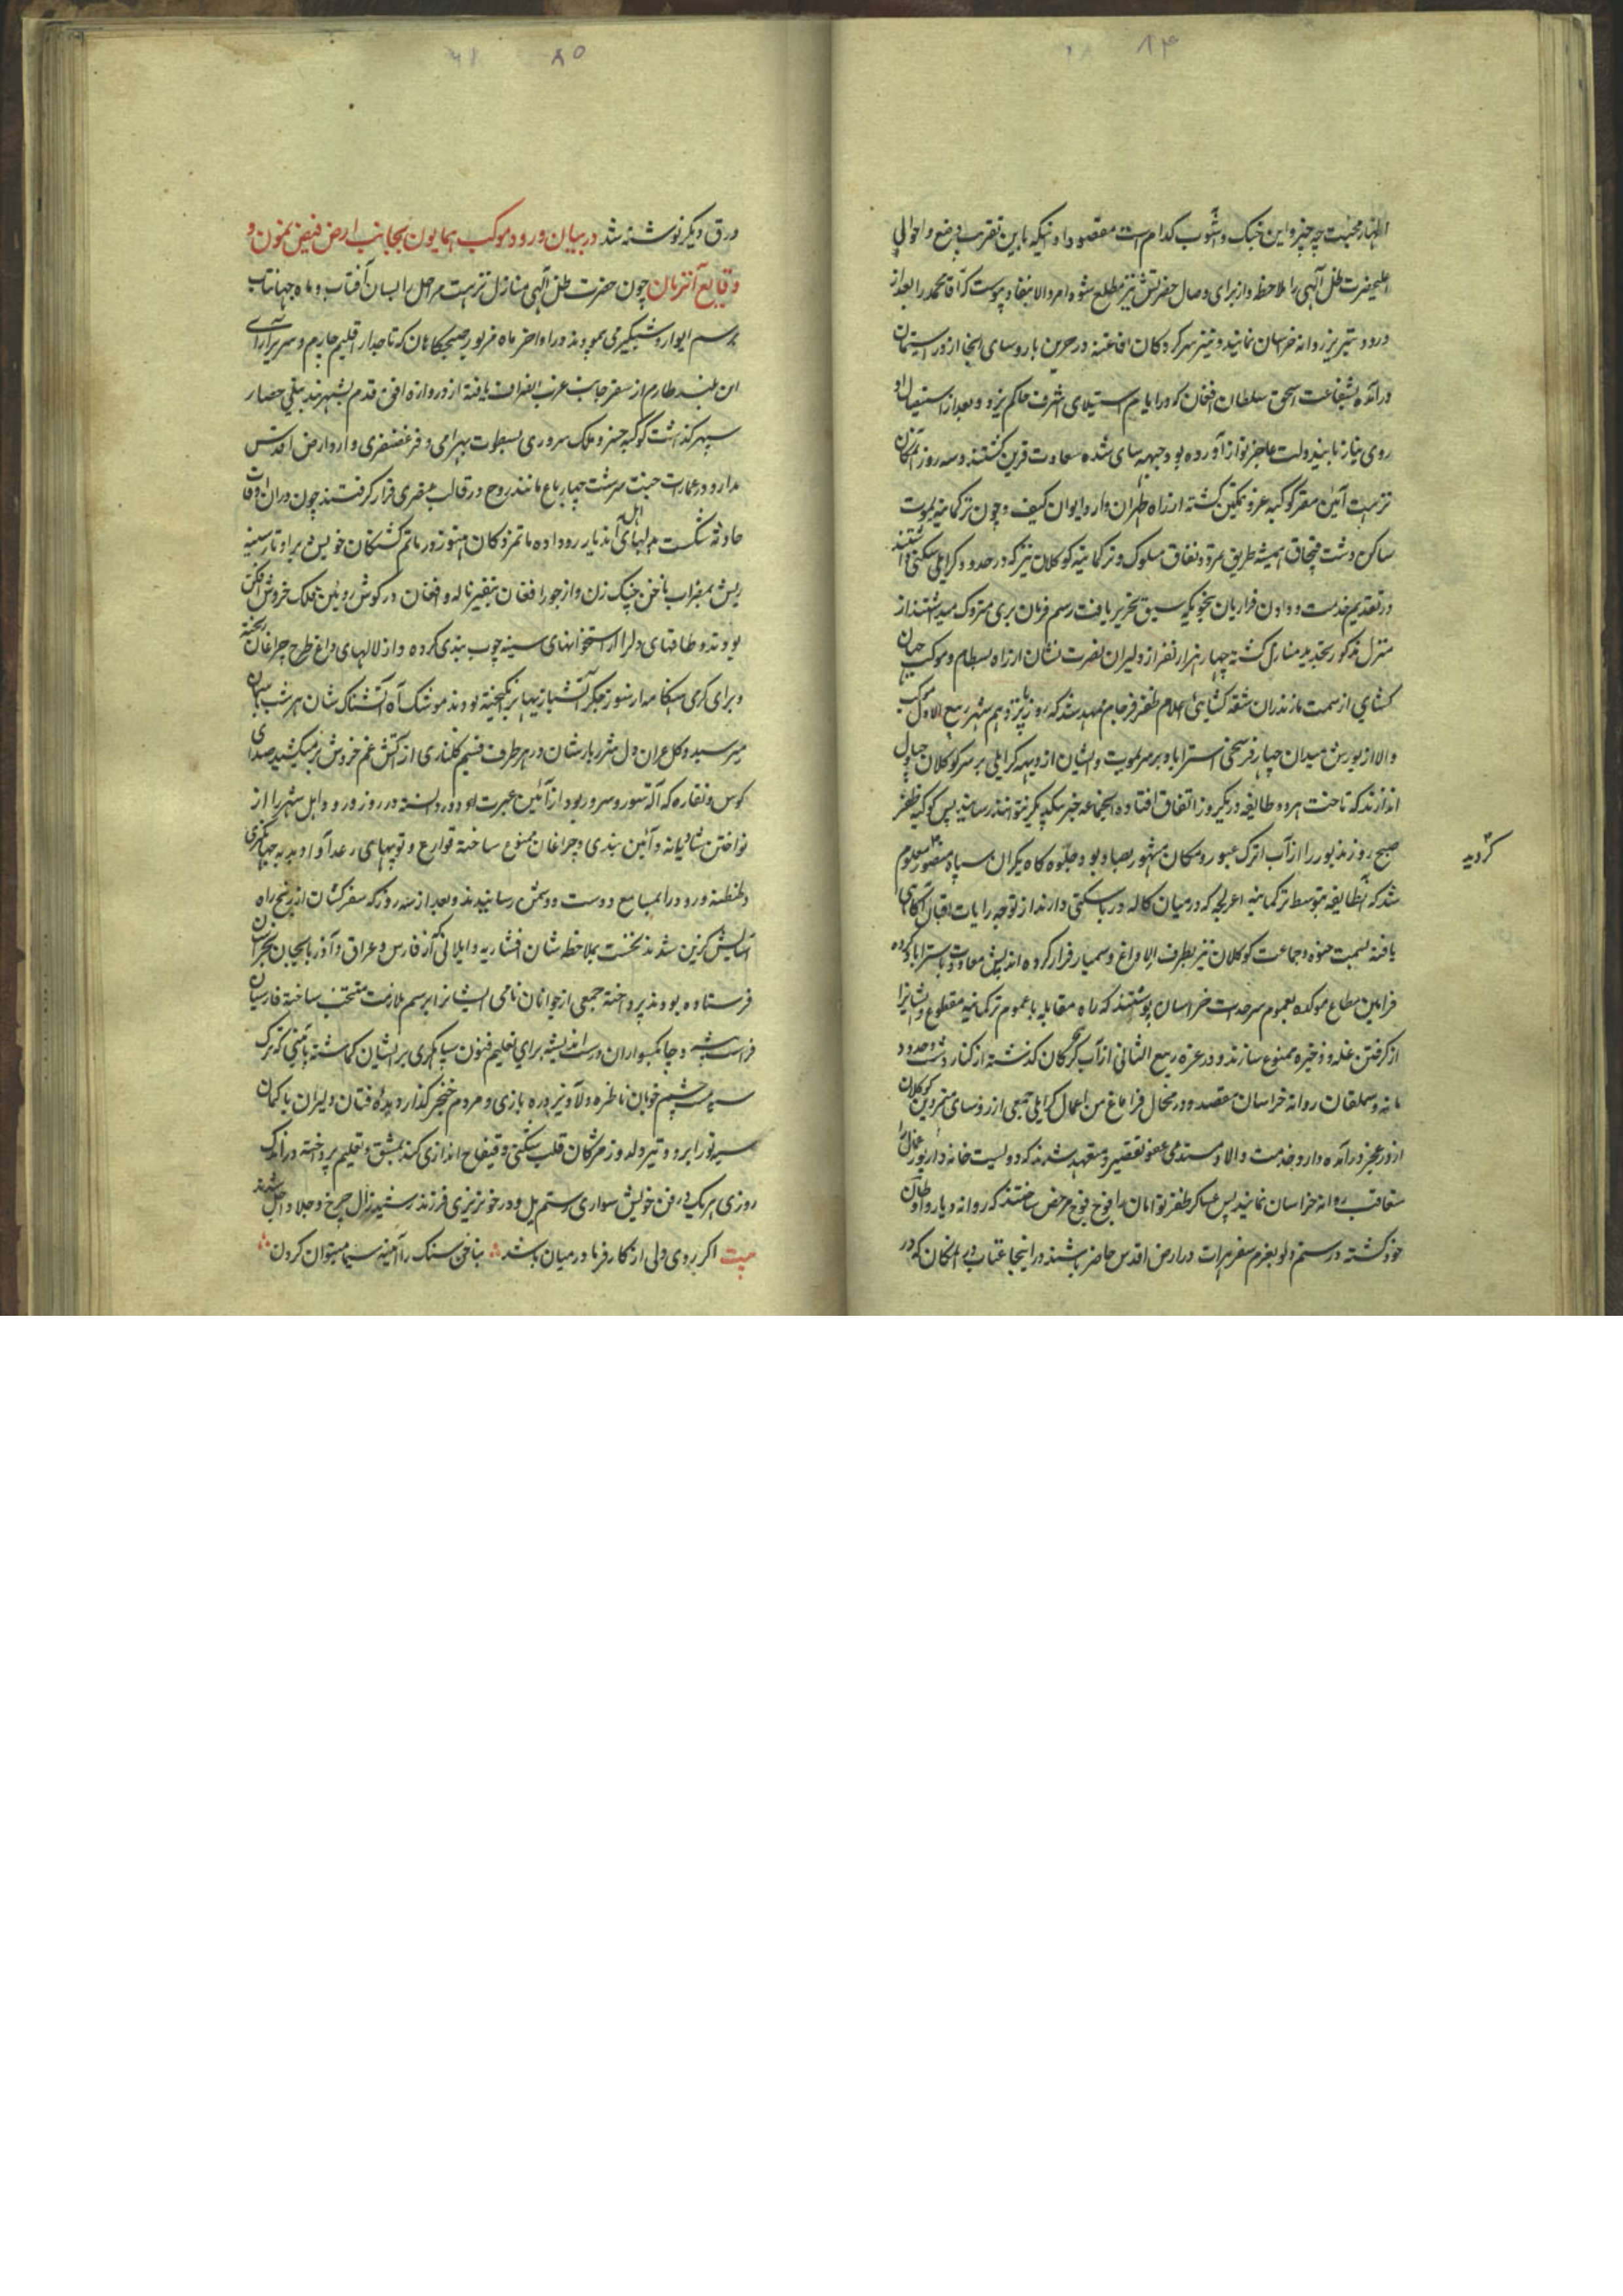 ۸۴
اظهار محبت چه چیز و این جنک و آشوب کدام است مقصود او اینکه باین تقریب وضع و احوال
اعلیحضرت ظل آلهی را ملاحظه و از برای وصال حضرتش نیز مطلع شود امر والا بنفاد پیوست که آقا محمد را بعد از
ورود تبریز روانه خراسان نمایند و نیز سرکردکان افاغنه در حین با روسای انجا از در استیمان
درآمده بشفاعت اسحق سلطان افغان که در ایام استیلای اشرف حاکم یزد و بعد از استیصال او
روی نیاز باین دولت عاجز نواز آورده بود جبهه سای شده سعادت قرین کشتند و سه روز آنمکان
نزهت آئین مقر کوکبه عز و تمکین کشته از راه طهران وارد ایوان کیف و چون ترکمانیه یموت
ساکن دشت قبچاق همیشه طریق تمرد و نفاق مسلوک و ترکمانیه کوکلان نیز که در حدود کرایلی سکنی داشتند
در تقدیم خدمت و دادن قراریان بنحویکه سبق تحریر یافت رسم فرمان بری متروک میداشتند از
منزل مذکور بتجدید منازل کشته چهار هزار نفر از دلیران نصرت نشان از راه بسطام و موکب جهان
کشای از سمت مازندران شقه کشای اعلام ظفر فرجام ممهد شد که روز پانزدهم شهر ربیع الاول موکب
والا از یورش میدان چهار فرسخی استراباد بر سر یموت و ایشان از ویهه کرایلی بر سر کوکلان چپاول
اندازند که تاخت هر دو طایفه در یکروز اتفاق افتاده اینجماعه خبر بیکدیکر نتوانند رسانید پس کوکبه ظفر
صبح روز مذبور را از آب اترک عبور و مکان مشهور بصاد بود جلوه کاه یکران سپاه منصور معلوم
کردید
شد که آنطایفه بتوسط ترکمانیه اعرلجه که در میان کاله در با سکنی دارند از توجه رایات اقبال آکاهی
یافته بسمت حنوه و جماعت کوکلان نیز بطرف الاداغ و سمبار فرار کرده اند پس معاودت باستراباد کرده
فرامین مطاع موکده بعموم سرحدات خراسان نوشتند که راه مقابله با عموم ترکمانیه مقطوع و ایشانرا
از کرفتن غله و ذخیره ممنوع سازند و در غره ربیع الثانی از آب کرکان کذشته از کنار دشت و حدود
مانه و سملقان روانه خراسان مقصد و در محال قراباغ من اعمال کرایلی جمعی از روسای متمردین کوکلان
از در عجز درآمده وارد خدمت والا و مستدعی عفو تقصیر و متعهد شدند که دویست خانه دار یورغمال را
متعاقب روانه خراسان نمایند پس عساکر ظفر توامان را فوج فوج مرخص ساختند که روانه دیار و اوطان
خود کشته در سیم دلو بعزم سفر هرات در ارض اقدس حاضر باشند در اینجا عتاب وی انکان که در
۸۵
ورق دیکر نوشته شد در بیان ورود موکب همایون بجانب ارض فیض نمون و
وقایع آنزمان چون حضرت ظل آلهی منازل نزهت مراحل را بسان آفتاب و ماه جهانتاب
برسم ایوار و شبکیر می پیمودند در اواخر ماه مزبور صبحکاهان که تاجدار اقلیم چارم و سریر آرای
این بلند طارم از سفر جانب غرب انصراف یافته از دروازه افق قدم بشهربند نیلی حصار
سپهر کذاشت کوکبه خسرو ملک سروری بسطوت بهرامی و فر غضنفری وارد ارض اقدس
مدار و در عمارت جنت سرشت چهار باغ مانند روح در قالب عنصری قرار کرفتند چون در ان اوقات
حادثه شکست بدلهای اهل آندیار رو داده ماتم زدکان هنوز در ماتم کشتکان خویش می بر و تار سینه
ریش بمضراب ناخن چنک زن و از جور افغان بنفیر ناله و افغان در کوش روئین فلک خروش افکن
بودند و طاقهای دلرا از استخوانهای سینه چوب بندی کرده و از لالهای داغ طرح چراغان ریخته
و برای کرمی هنکامه از سوز جکر آتشبازیها برانکیخته بودند موشک آه آتشناک شان هر شب بآسمان
میرسید و کلعذران دل شرر بارشان در هر طرف نسیم کلناری از آتش غم خروش بر میکشید صدای
کوس و نقاره که آلت سور و سرور بود از آئین عبرت او دور دانسته در روز ورود اهل شهر را از
نواختن شادیانه و آئین بندی و چراغان ممنوع ساخته قوارع و توپهای رعد آوا و بدبه جهانکیری
و طنطنه ورود را بمسامع دوست و دشمن رسانیدند و بعد از سه روز که سفر کشان از رنج راه
آسایش کزین شدند نخست بملاحظه شان افشاریه و ایلاتی که از فارس و عراق و آذربایجان بخراسان
فرستاده بودند پرداخته جمعی از جوانان نامی ایشانرا برسم ملازمت منتخب ساخته فارسیان
فراست پیشه و چابکسواران درست اندیشه برای تعلیم فنون سپاهکری بر ایشان کماشته بآئینی که ترک
سیه مست چشم خوبان ناظره دلاویز دره بازی و مردم خنجر کذار دیده فتان دلیران با کمان
سیه توز ابرو و تیر دلدوز مژکان قلب شکنی و قیقاج اندازی کند بمشق و تعلیم پرداخته در اندک
روزی هر یک در فن خویش سواری رستم یل و در خونریزی فرزند رشید زال چرخ و جلاد اجل شدند
بیت اکر بروی دلی از کارفرما در میان باشد بناخن سنک را آئینه سیما میتوان کردن